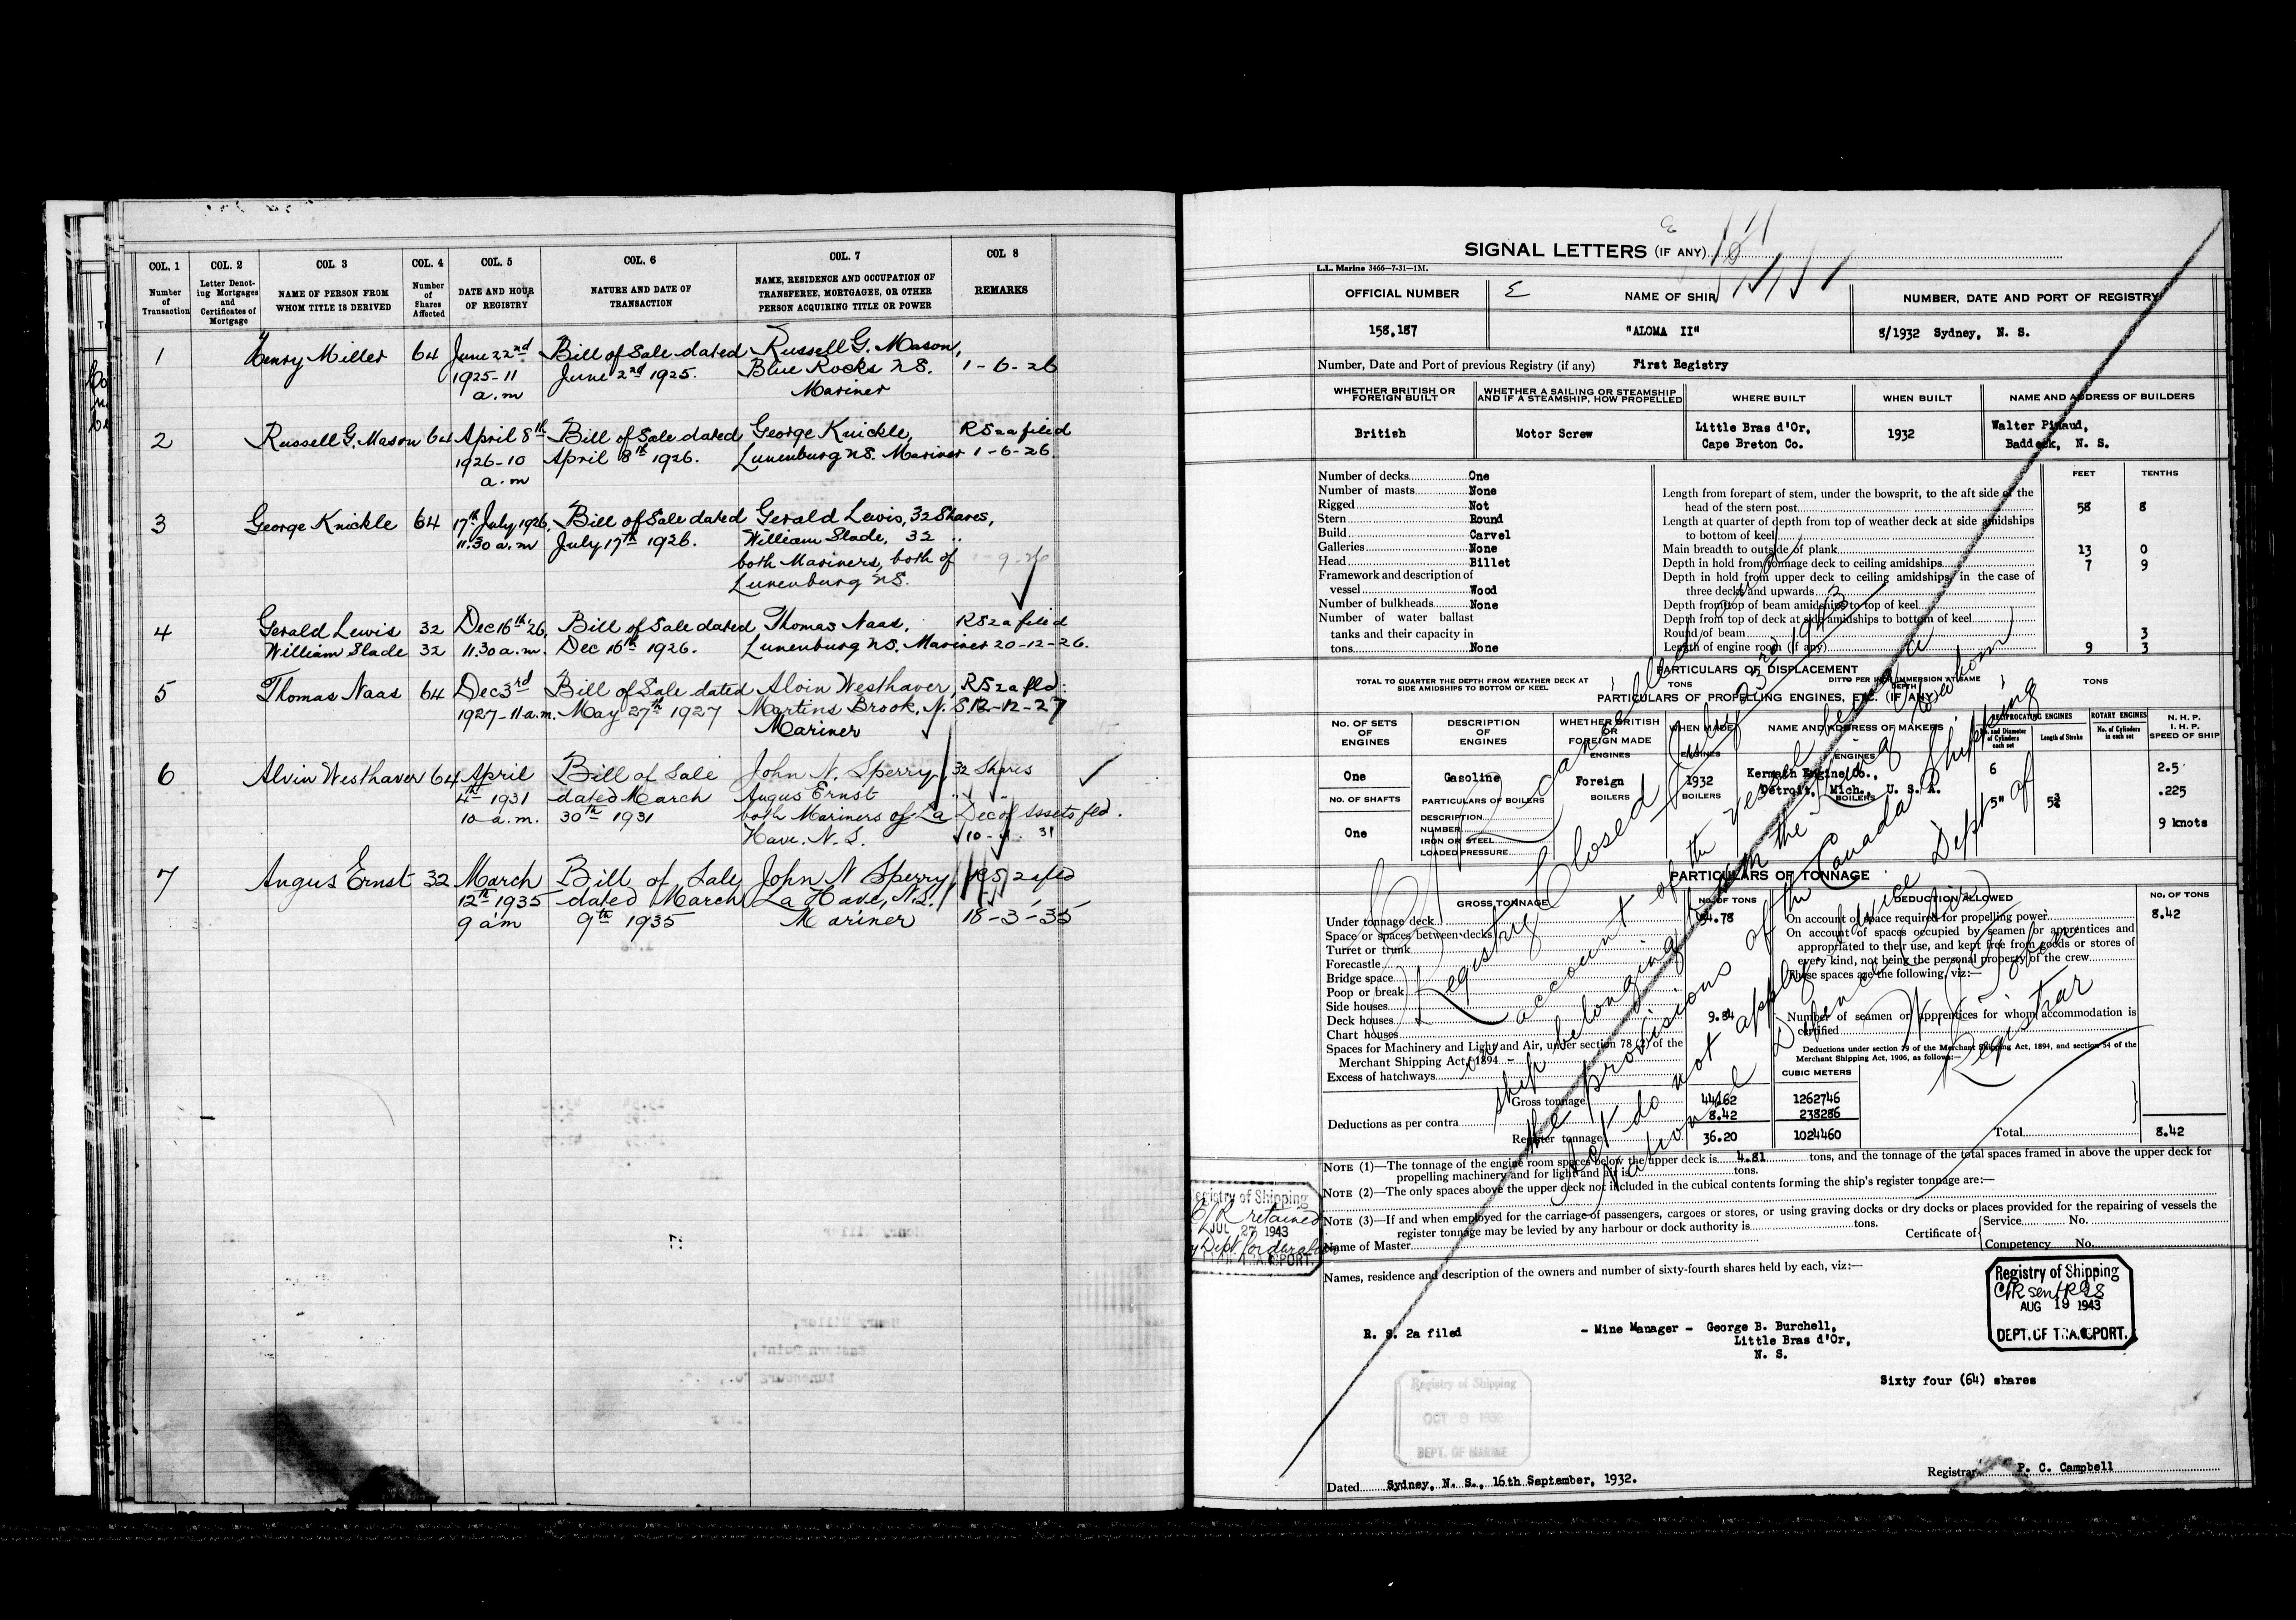 COL. 1 COL. 2 COL. 3 COL. 4 COL. 5 COL. 6 COL. 7 COL 8
Number of Transaction
Letter Denoting Mortgages and Certificates of Mortgage
NAME OF PERSON FROM WHOM TITLE IS DERIVED
Number of Shares Affected
DATE AND HOUR OF REGISTRY
NATURE AND DATE OF TRANSACTION
NAME, RESIDENCE AND OCCUPATION OF TRANSFEREE, MORTGAGEE, OR OTHER PERSON ACQUIRING TITLE OR POWER
REMARKS
1 Henry Miller 64 June 22nd Bill of Sale dated Russell G. Mason,
1925-11 June 2nd 1925. Blue Rocks N.S. 1-6-26
a.m Mariner
2 Russell G. Mason 64 April 8th Bill of Sale dated George Knickle, RS2a filed
1926-10 April 8th 1926. Lunenburg N.S. Mariner 1-6-26.
a.m
3 George Knickle 64 17th July 1926. Bill of Sale dated Gerald Lewis, 32 Shares,
11.30 a.m July 17th 1926. William Slade, 32 "
both Mariners, both of 9-26
Lunenburg N.S.
4 Gerald Lewis 32 Dec 16th 26. Bill of Sale dated Thomas Naas, RS2a filed
William Slade 32 11.30 a.m. Dec 16th 1926. Lunenburg N.S. Mariner 20-12-26.
5 Thomas Naas 64 Dec 3rd Bill of Sale dated Alvin Westhaver, RS2a fld:
1927-11 a.m. May 27th 1927 Martins Brook, N.S. 12-12-27
Mariner
6 Alvin Westhaver 64 April Bill of Sale John N. Sperry, 32 Shares
4th 1931 dated March Angus Ernst " "
10 a.m. 30th 1931 both Mariners of La Dec of Assets fld.
Have. N.S. 10-4-31
7 Angus Ernst 32 March Bill of Sale John N Sperry RS 2a fled
12th 1935 dated March La Have, N.S.
9 am 9th 1935 Mariner 18-3-35
SIGNAL LETTERS (IF ANY)
L.L. Marine 3466-7-31-1M.
OFFICIAL NUMBER NAME OF SHIP NUMBER, DATE AND PORT OF REGISTRY
158,187 "ALOMA II" 8/1932 Sydney, N. S.
Number, Date and Port of previous Registry (if any) First Registry
WHETHER BRITISH OR FOREIGN BUILT
WHETHER A SAILING OR STEAMSHIP AND IF A STEAMSHIP, HOW PROPELLED
WHERE BUILT WHEN BUILT NAME AND ADDRESS OF BUILDERS
British Motor Screw Little Bras d'Or, Cape Breton Co. 1932 Walter Pinaud, Baddeck, N. S.
Number of decks One
Number of masts None
Rigged Not
Stern Round
Build Carvel
Galleries None
Head Billet
Framework and description of vessel Wood
Number of bulkheads None
Number of water ballast tanks and their capacity in tons None
FEET TENTHS
Length from forepart of stem, under the bowsprit, to the aft side of the head of the stern post 58 8
Length at quarter of depth from top of weather deck at side amidships to bottom of keel
Main breadth to outside of plank 13 0
Depth in hold from tonnage deck to ceiling amidships 7 9
Depth in hold from upper deck to ceiling amidships, in the case of three decks and upwards
Depth from top of beam amidships to top of keel
Depth from top of deck at side amidships to bottom of keel
Round of beam 3
Length of engine room (if any) 9 3
PARTICULARS OF DISPLACEMENT
TOTAL TO QUARTER THE DEPTH FROM WEATHER DECK AT SIDE AMIDSHIPS TO BOTTOM OF KEEL TONS DITTO PER INCH IMMERSION AT SAME DEPTH TONS
PARTICULARS OF PROPELLING ENGINES, ETC. (IF ANY)
No. OF SETS OF ENGINES DESCRIPTION OF ENGINES WHETHER BRITISH OR FOREIGN MADE WHEN MADE NAME AND ADDRESS OF MAKERS RECIPROCATING ENGINES ROTARY ENGINES N. H. P. I. H. P. SPEED OF SHIP
No. and Diameter of Cylinders each set Length of Stroke No. of Cylinders in each set
ENGINES ENGINES ENGINES
One Gasoline Foreign 1932 Kermath Engine Co., Detroit, Mich., U. S. A. 6 5" 5¾ 2.5 .225 9 knots
No. OF SHAFTS PARTICULARS OF BOILERS BOILERS BOILERS BOILERS
One
DESCRIPTION
NUMBER
IRON OR STEEL
LOADED PRESSURE
PARTICULARS OF TONNAGE
GROSS TONNAGE No. OF TONS DEDUCTION ALLOWED No. OF TONS
Under tonnage deck 34.78
Space or spaces between decks
Turret or trunk
Forecastle
Bridge space
Poop or break
Side houses
Deck houses 9.84
Chart houses
Spaces for Machinery and Light and Air, under section 78 (2) of the Merchant Shipping Act, 1894
Excess of hatchways
On account of space required for propelling power 8.42
On account of spaces occupied by seamen or apprentices and appropriated to their use, and kept free from goods or stores of every kind, not being the personal property of the crew
These spaces are the following, viz:—
Number of seamen or apprentices for whom accommodation is certified
Deductions under section 79 of the Merchant Shipping Act, 1894, and section 54 of the Merchant Shipping Act, 1906, as follows:—
CUBIC METERS
Gross tonnage 44.62 1262746
Deductions as per contra 8.42 238286
Register tonnage 36.20 1024460 Total 8.42
Registry Closed July 23rd 1943
on account of the vessel being a
ship belonging to the King to whom
the provisions of the Canada Shipping
Act do not apply
National Defence
Registrar
NOTE (1)—The tonnage of the engine room spaces below the upper deck is 4.81 tons, and the tonnage of the total spaces framed in above the upper deck for propelling machinery and for light and air is tons.
NOTE (2)—The only spaces above the upper deck not included in the cubical contents forming the ship's register tonnage are:—
NOTE (3)—If and when employed for the carriage of passengers, cargoes or stores, or using graving docks or dry docks or places provided for the repairing of vessels the register tonnage may be levied by any harbour or dock authority is tons.
Name of Master Certificate of Service No. Competency No.
Registry of Shipping
C/R retained
JUL 27 1943
Names, residence and description of the owners and number of sixty-fourth shares held by each, viz:—
Registry of Shipping
C/R sent RGS
AUG 19 1943
DEPT. OF TRANSPORT.
R. S. 2a filed - Mine Manager - George B. Burchell,
Little Bras d'Or,
N. S.
Sixty four (64) shares
Registry of Shipping
OCT 8 1932
DEPT. OF MARINE
Registrar P. C. Campbell
Dated Sydney, N. S., 16th September, 1932.